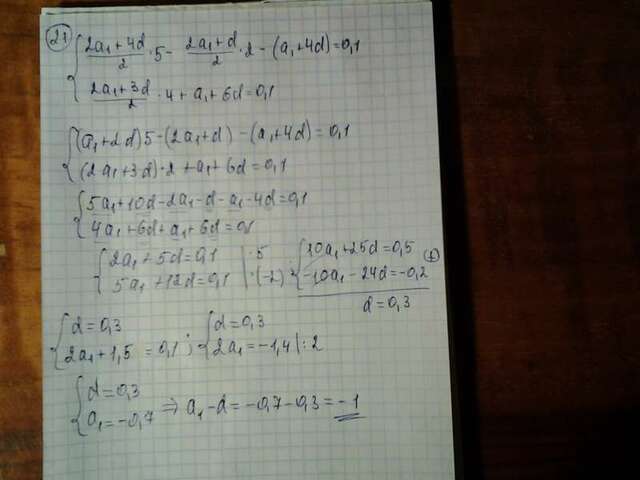 21
{ (2a₁+4d)/2 · 5 - (2a₁+d)/2 · 2 - (a₁+4d) = 0,1
{ (2a₁+3d)/2 · 4 + a₁ + 6d = 0,1
{ (a₁+2d)5 - (2a₁+d) - (a₁+4d) = 0,1
{ (2a₁+3d)·2 + a₁ + 6d = 0,1
{ 5a₁+10d-2a₁-d-a₁-4d=0,1
{ 4a₁+6d+a₁+6d=0,1
{ 2a₁+5d=0,1 | ·5 { 10a₁+25d=0,5
{ 5a₁+12d=0,1 | ·(-2) { -10a₁-24d=-0,2 (+)
d=0,3
{ d=0,3 ; { d=0,3
{ 2a₁+1,5=0,1 { 2a₁=-1,4 | :2
{ d=0,3
{ a₁=-0,7 ⇒ a₁-d=-0,7-0,3=-1